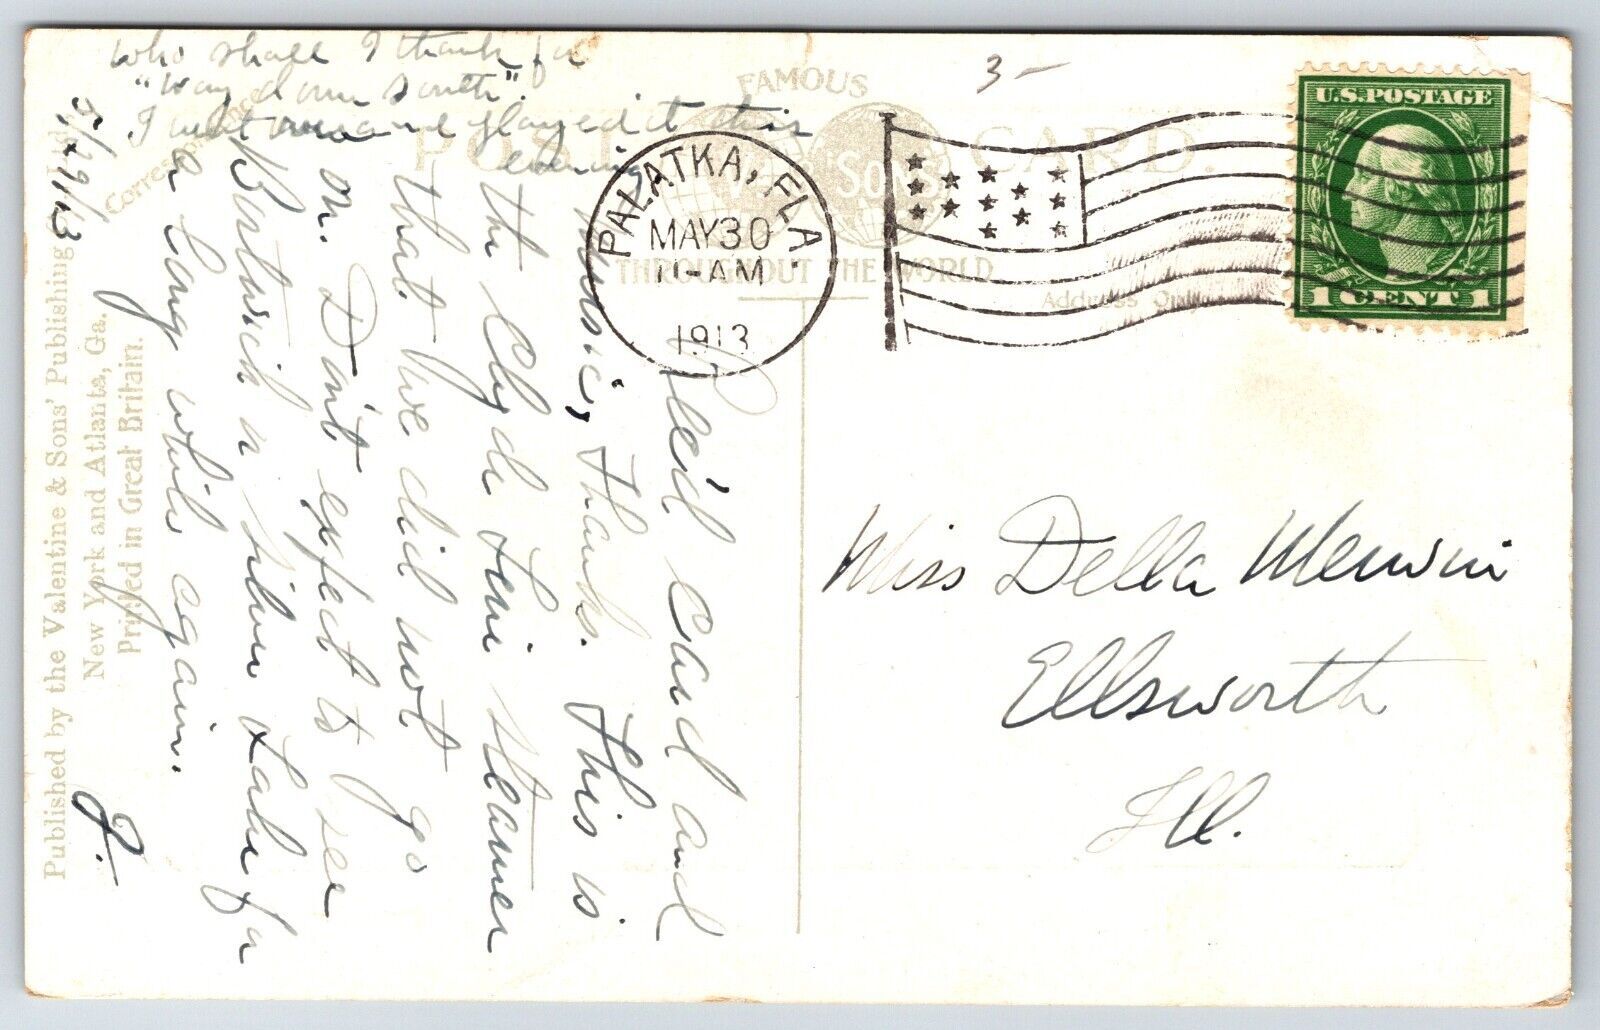 who shall I thank for
"way down south".
I went over and played it this
evening
5/29/13
Rec'd card and
music, thanks. This is
the Clyde Line steamer
that we did not go
on. Don't expect to see
Bostwick n Silver Lake for
a long while again.
J.
FAMOUS
POST CARD.
SONS
THROUGHOUT THE WORLD
Correspondence
Address Only
Published by the Valentine & Sons' Publishing
New York and Atlanta, Ga.
Printed in Great Britain.
3-
PALATKA, FLA.
MAY 30
-AM
1913
U.S. POSTAGE
1 CENT 1
Miss Della Merwin
Ellsworth
Ill.